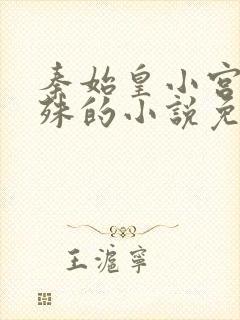 秦始皇小宫
殊的小說免
王滬寧